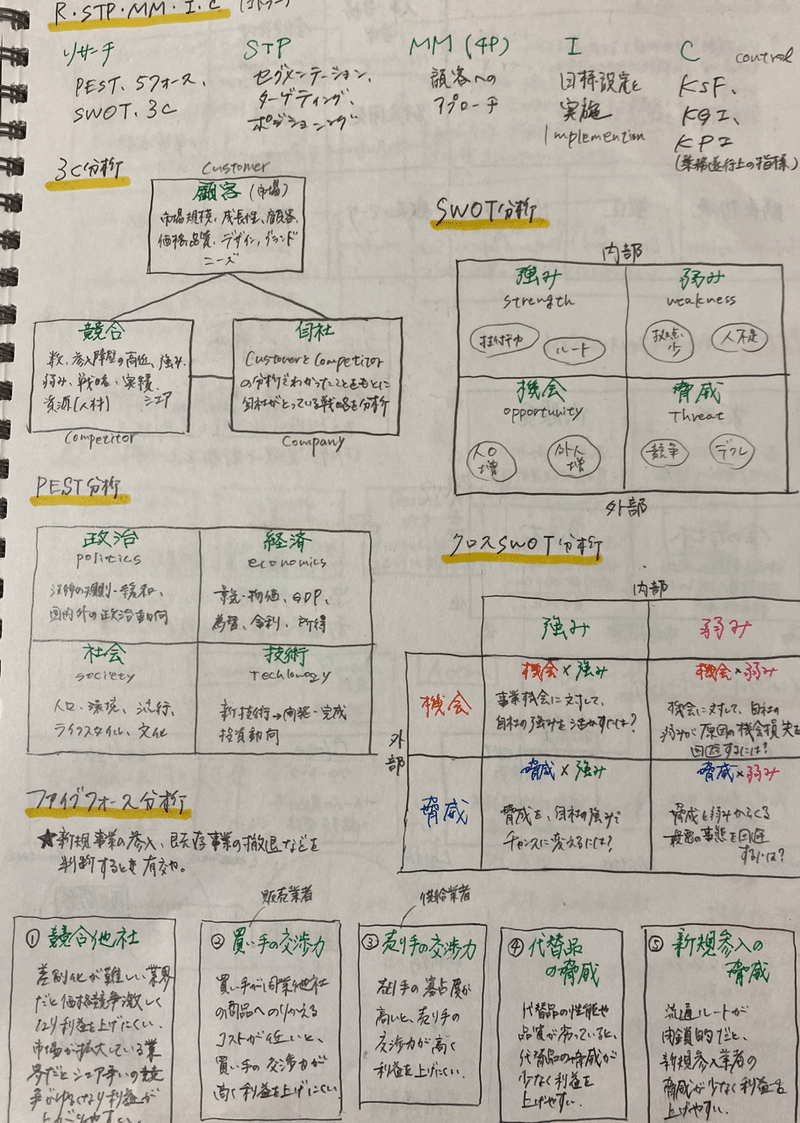 R・STP・MM・I・C (コトラー)
リサーチ
PEST、5フォース、
SWOT、3C
STP
セグメンテーション、
ターゲティング、
ポジショニング
MM (4P)
顧客への
アプローチ
I
目標設定と
実施
Implemention
C control
KSF、
KGI、
KPI
(業務遂行上の指標)
3C分析
Customer
顧客 (市場)
市場規模、成長性、顧客、
価格、品質、デザイン、ブランド
ニーズ
競合
数、参入障壁の高低、強み、
弱み、戦略・実績、
資源(人材) シェア
Competitor
自社
CustomerとCompetitor
の分析でわかったことをもとに
自社がとっている戦略を分析
Company
SWOT分析
内部
強み
strength
技術力
ルート
弱み
weakness
拠点
少
人不足
機会
opportunity
人口
増
外人
増
脅威
Threat
競争
デフレ
外部
PEST分析
政治
politics
法律の規制・緩和、
国内外の政治動向
経済
economics
景気・物価、GDP、
為替、金利、所得
社会
society
人口・環境、流行、
ライフスタイル、文化
技術
techlonogy
新技術→開発・完成
投資動向
クロスSWOT分析
内部
強み
弱み
外
部
機会
機会×強み
事業機会に対して、
自社の強みを活かすには?
機会×弱み
機会に対して、自社の
弱みが原因の機会損失を
回避するには?
脅威
脅威×強み
脅威を、自社の強みで
チャンスに変えるには?
脅威×弱み
脅威と弱みからくる
最悪の事態を回避
するには?
ファイブフォース分析
★新規事業の参入、既存事業の撤退などを
判断するとき有効。
①競合他社
差別化が難しい業界
だと価格競争激しく
なり利益を上げにくい。
市場が拡大している業
界だとシェア争いの競
争がゆるくなり利益が
上がりやすい。
販売業者
②買い手の交渉力
買い手が同業他社
の商品へのりかえる
コストが低いと、
買い手の交渉力が
高く利益を上げにくい
供給業者
③売り手の交渉力
売り手の寡占度が
高いと、売り手の
交渉力が高く
利益を上げにくい。
④代替品
の脅威
代替品の性能や
品質が劣っていると、
代替品の脅威が
少なく利益を
上げやすい。
⑤新規参入の
脅威
流通ルートが
閉鎖的だと、
新規参入業者の
脅威が少なく利益を
上げやすい。